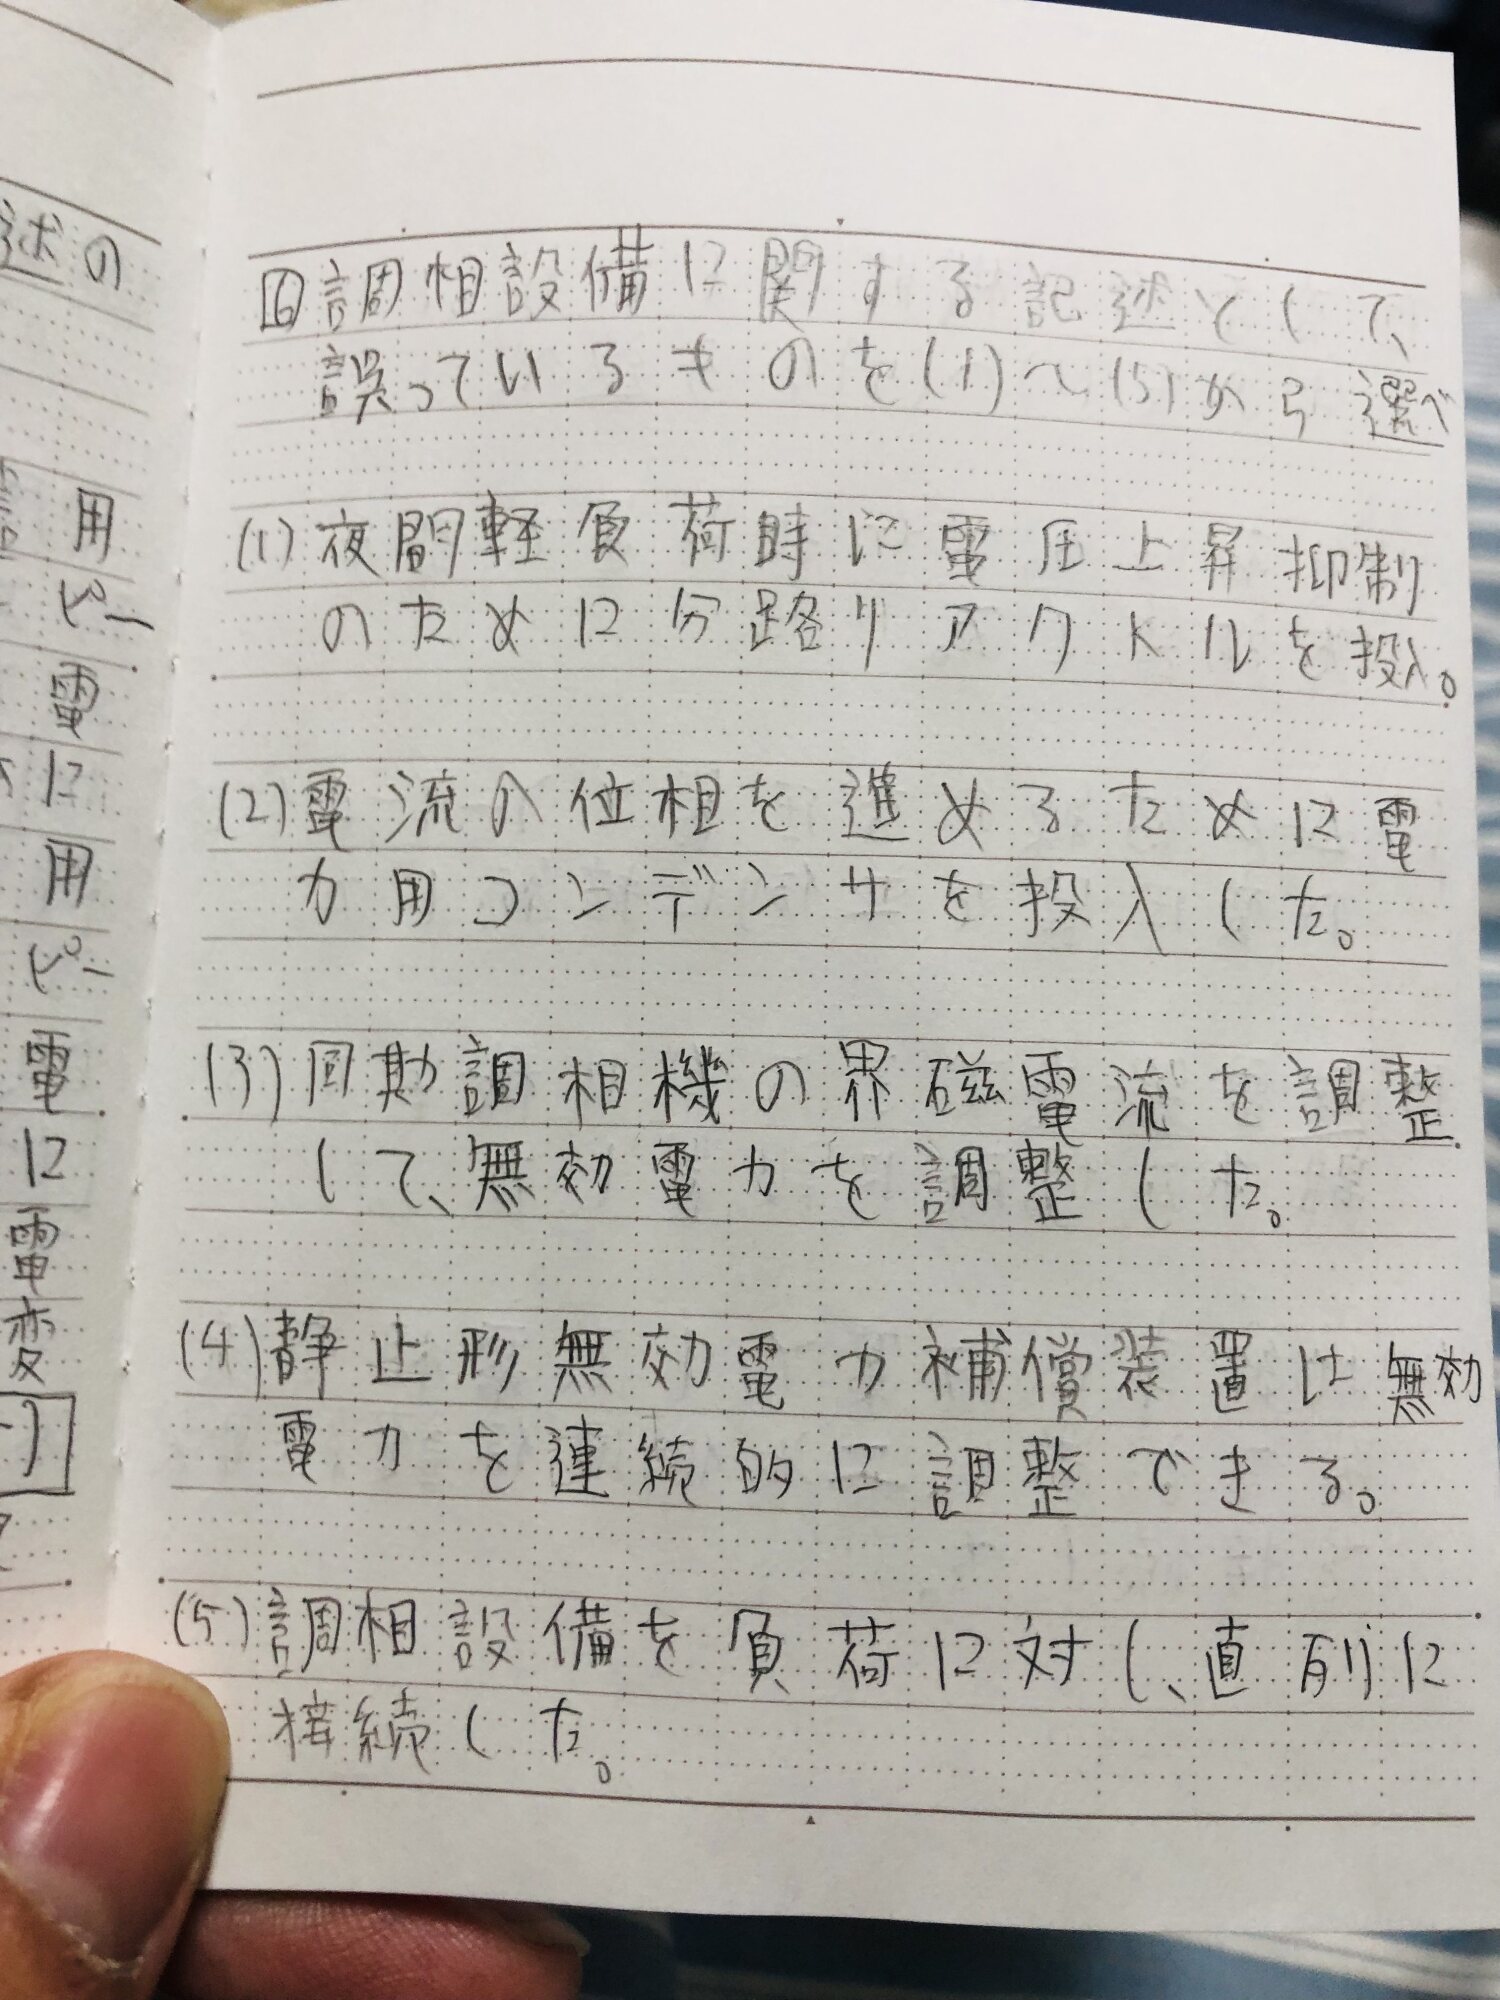 述の
用
ピー
電
に
用
ピー
電
に
電
変
6 調相設備に関する記述として、
誤っているものを(1)~(5)から選べ
(1)夜間軽負荷時に電圧上昇抑制
のために分路リアクトルを投入。
(2)電流の位相を進めるために電
力用コンデンサを投入した。
(3)同期調相機の界磁電流を調整
して、無効電力を調整した。
(4)静止形無効電力補償装置は無効
電力を連続的に調整できる。
(5)調相設備を負荷に対し、直列に
接続した。